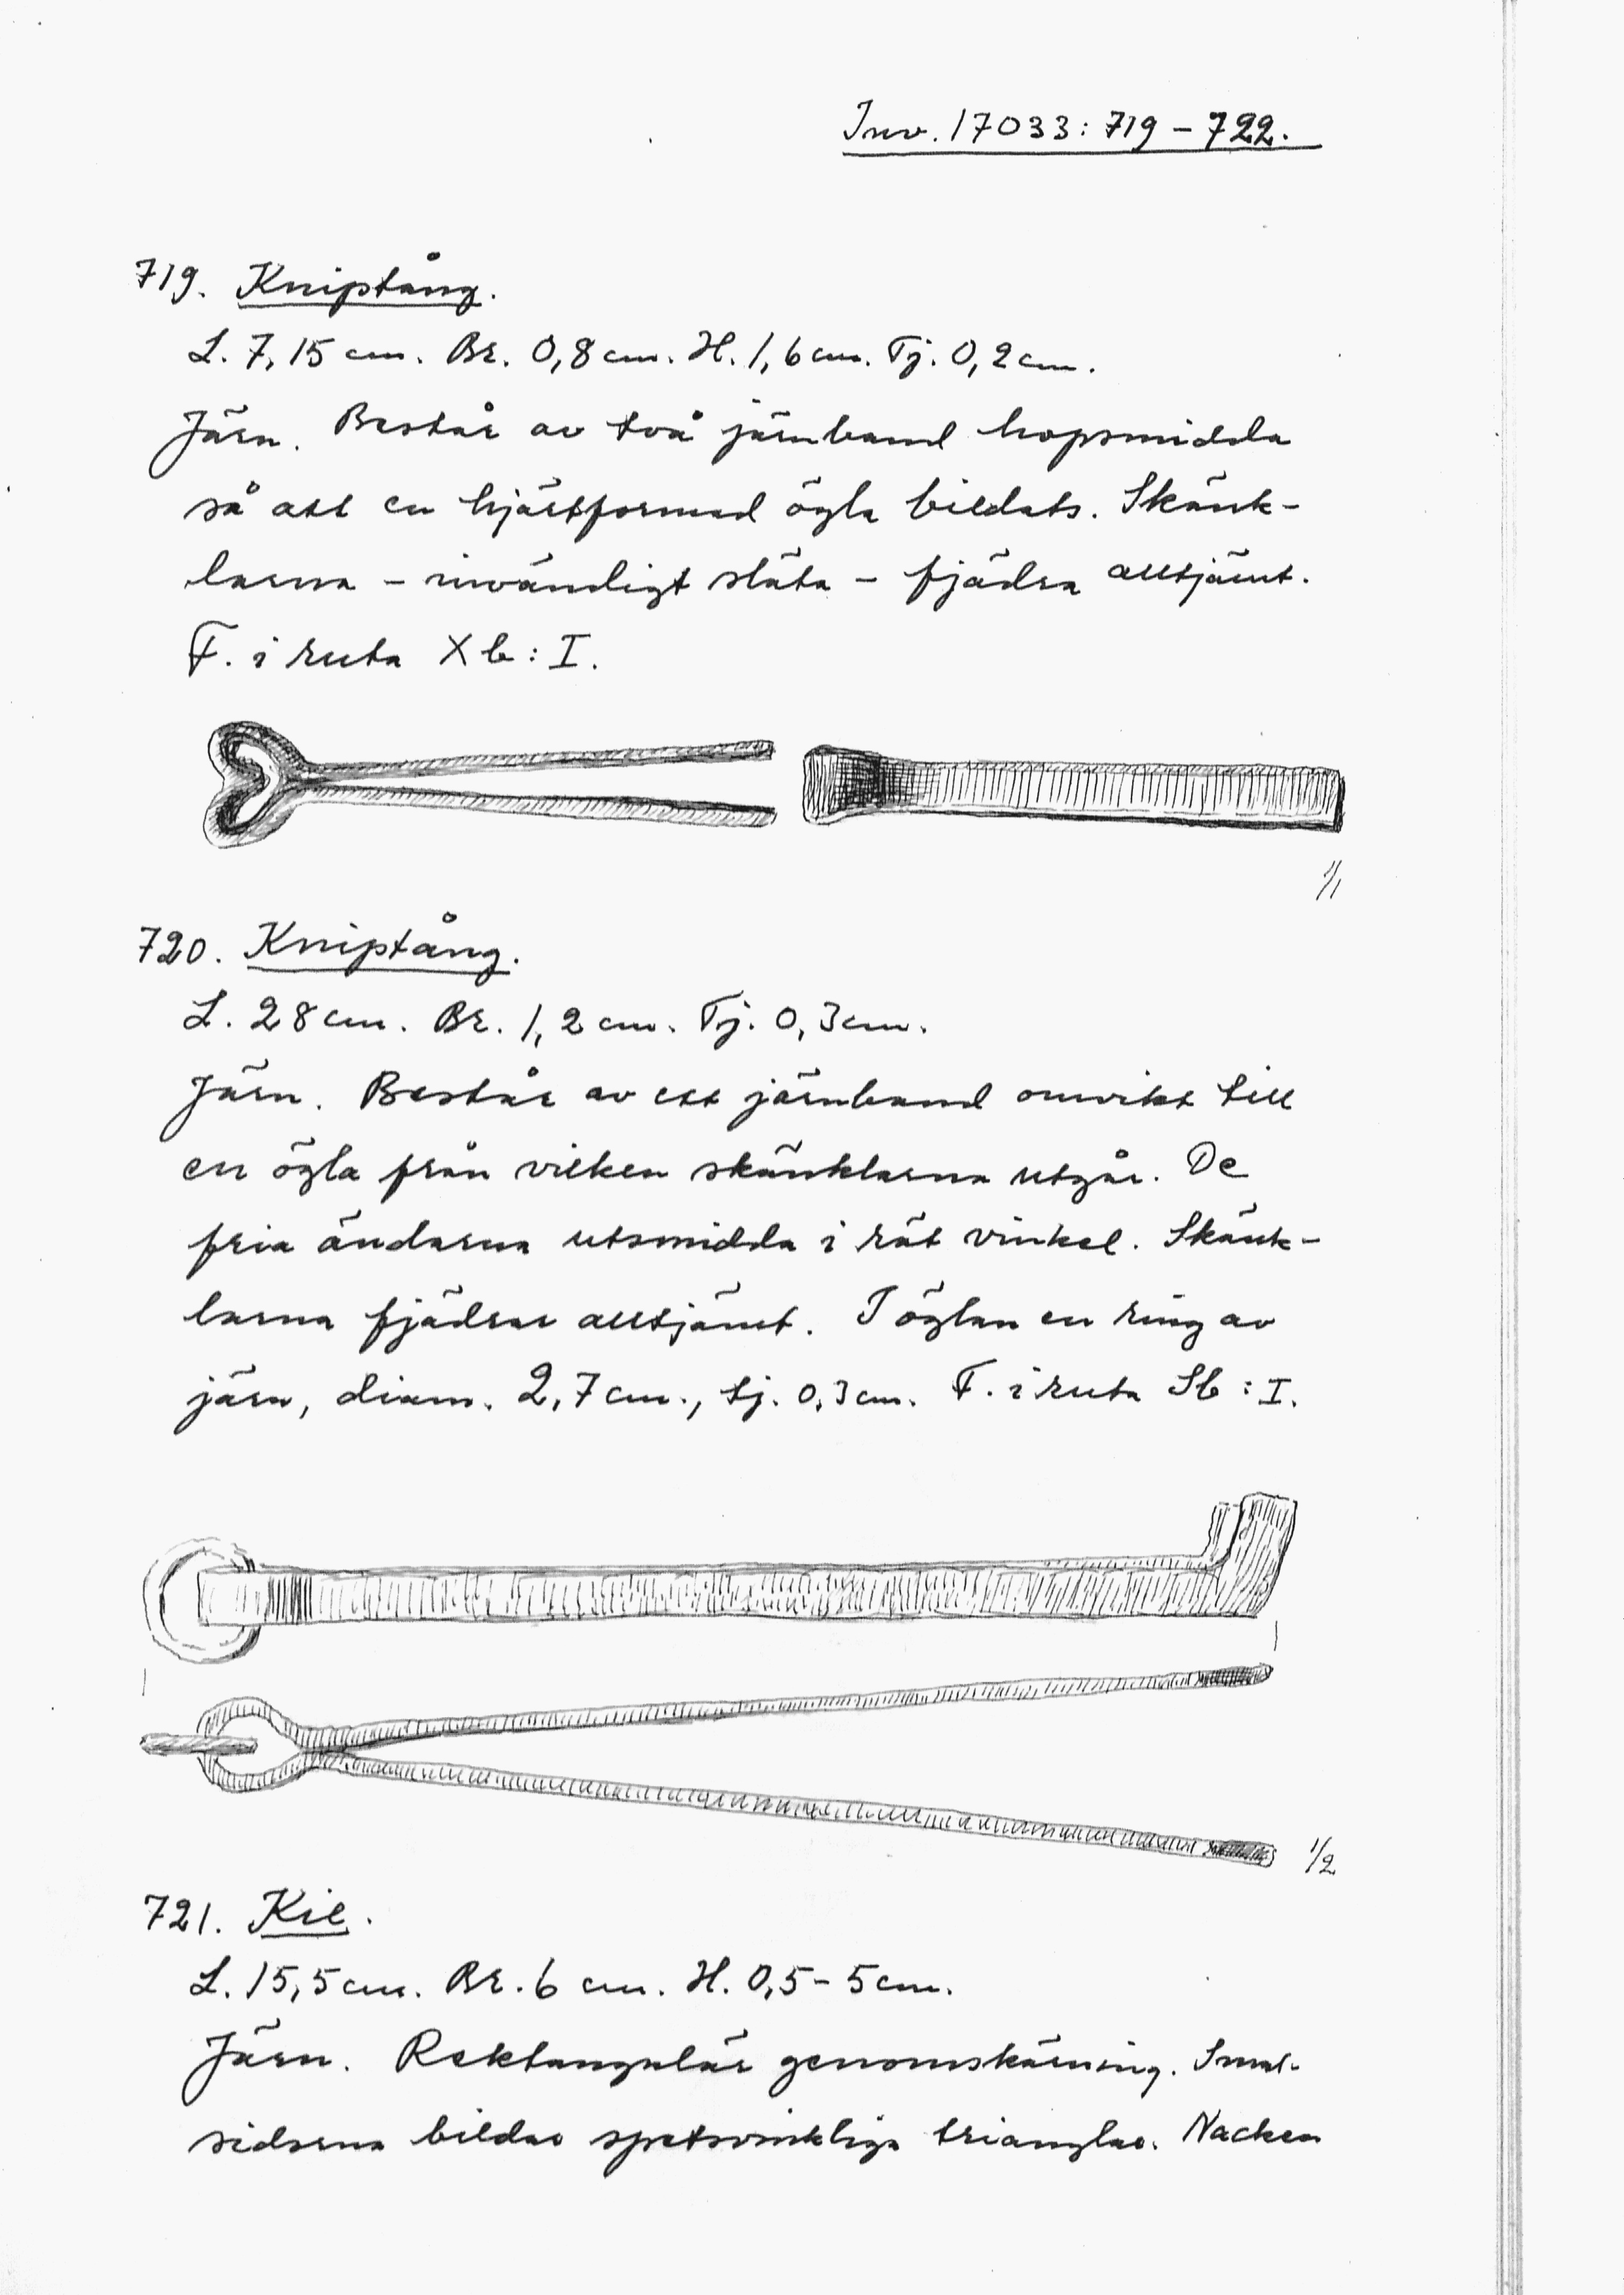 Inv. 17033: 719 – 722.
719. Kniptång.
L. 7,15 cm. Br. 0,8 cm. H. 1,6 cm. Tj. 0,2 cm.
Järn. Består av två järnband hopsmidda
så att en hjärtformad ögla bildats. Skänk-
larna – invändigt släta – fjädra alltjämt.
F. i ruta X b : I.
1/1
720. Kniptång.
L. 28 cm. Br. 1,2 cm. Tj. 0,3 cm.
Järn. Består av ett järnband omvikt till
en ögla från vilken skänklarna utgår. De
fria ändarna utsmidda i rät vinkel. Skänk-
larna fjädrar alltjämt. I öglan en ring av
järn, diam. 2,7 cm., tj. 0,3 cm. F. i ruta S b : I.
1/2
721. Kil.
L. 15,5 cm. Br. 6 cm. H. 0,5 – 5 cm.
Järn. Rektangulär genomskärning. Smal-
sidorna bildar spetsvinkliga trianglar. Nacken